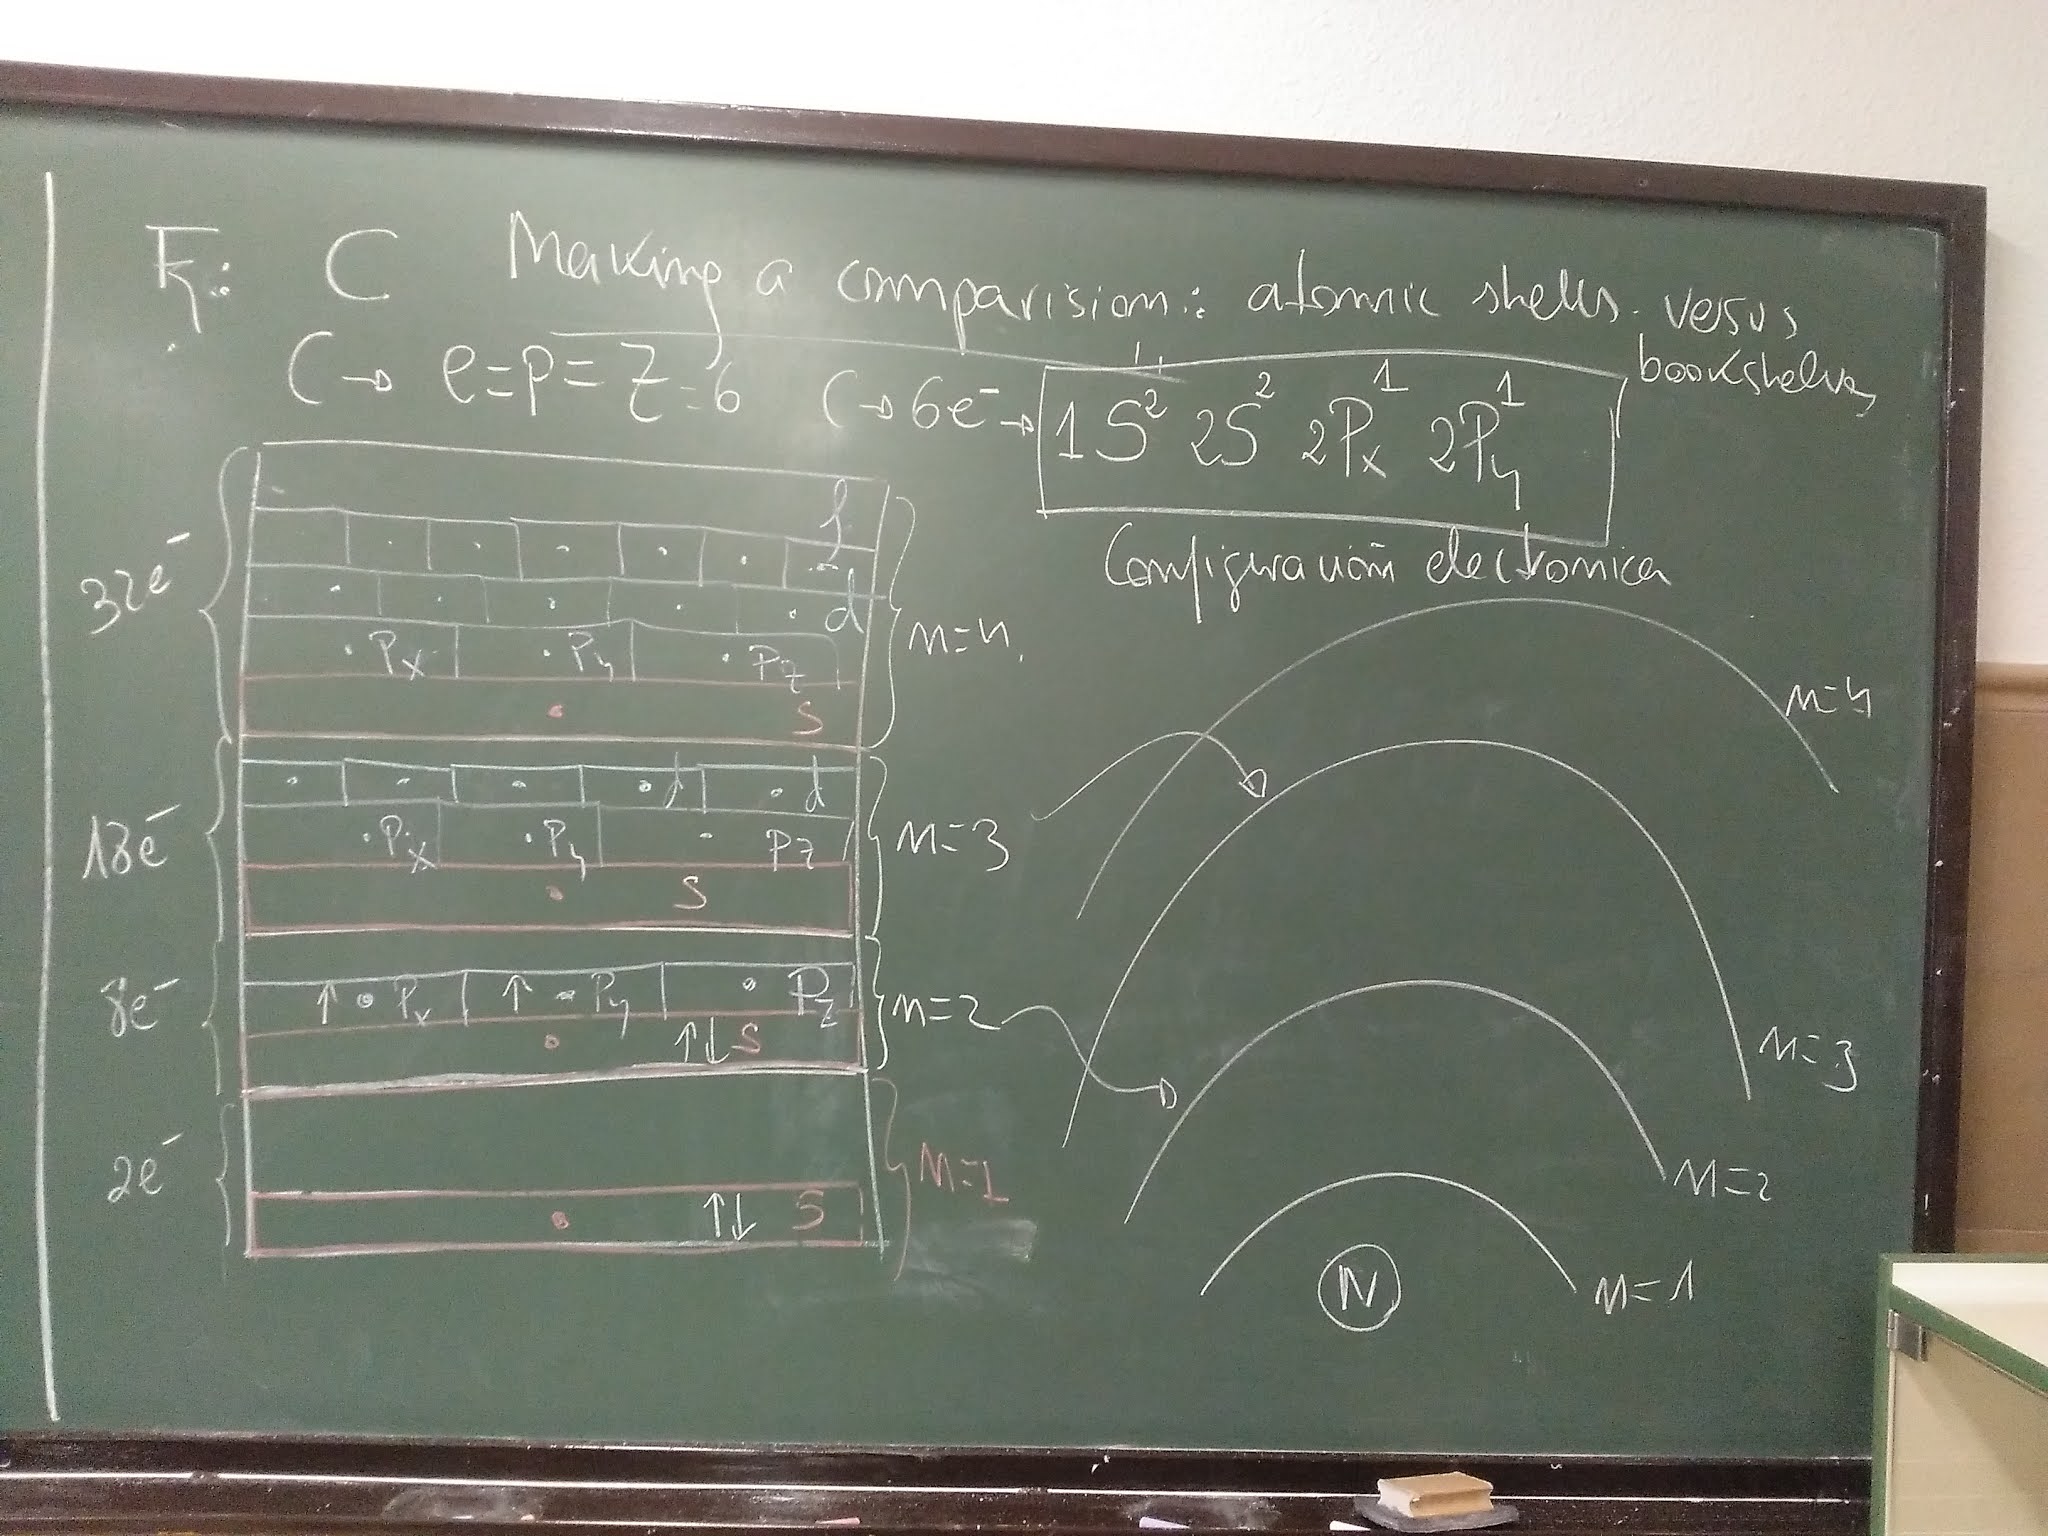 Ej: C Making a comparision: atomic shells versus
bookshelves
C → e=p=Z=6 C → 6e⁻ → 1S² 2S² 2Px¹ 2Py¹
Configuración electronica
32e⁻
f
d
Px Py Pz
S
n=4
18e⁻
d d
Px Py Pz
S
n=3
8e⁻
↑ Px ↑ Py Pz
↑↓ S
n=2
2e⁻
↑↓ S
n=1
n=4
n=3
n=2
n=1
N